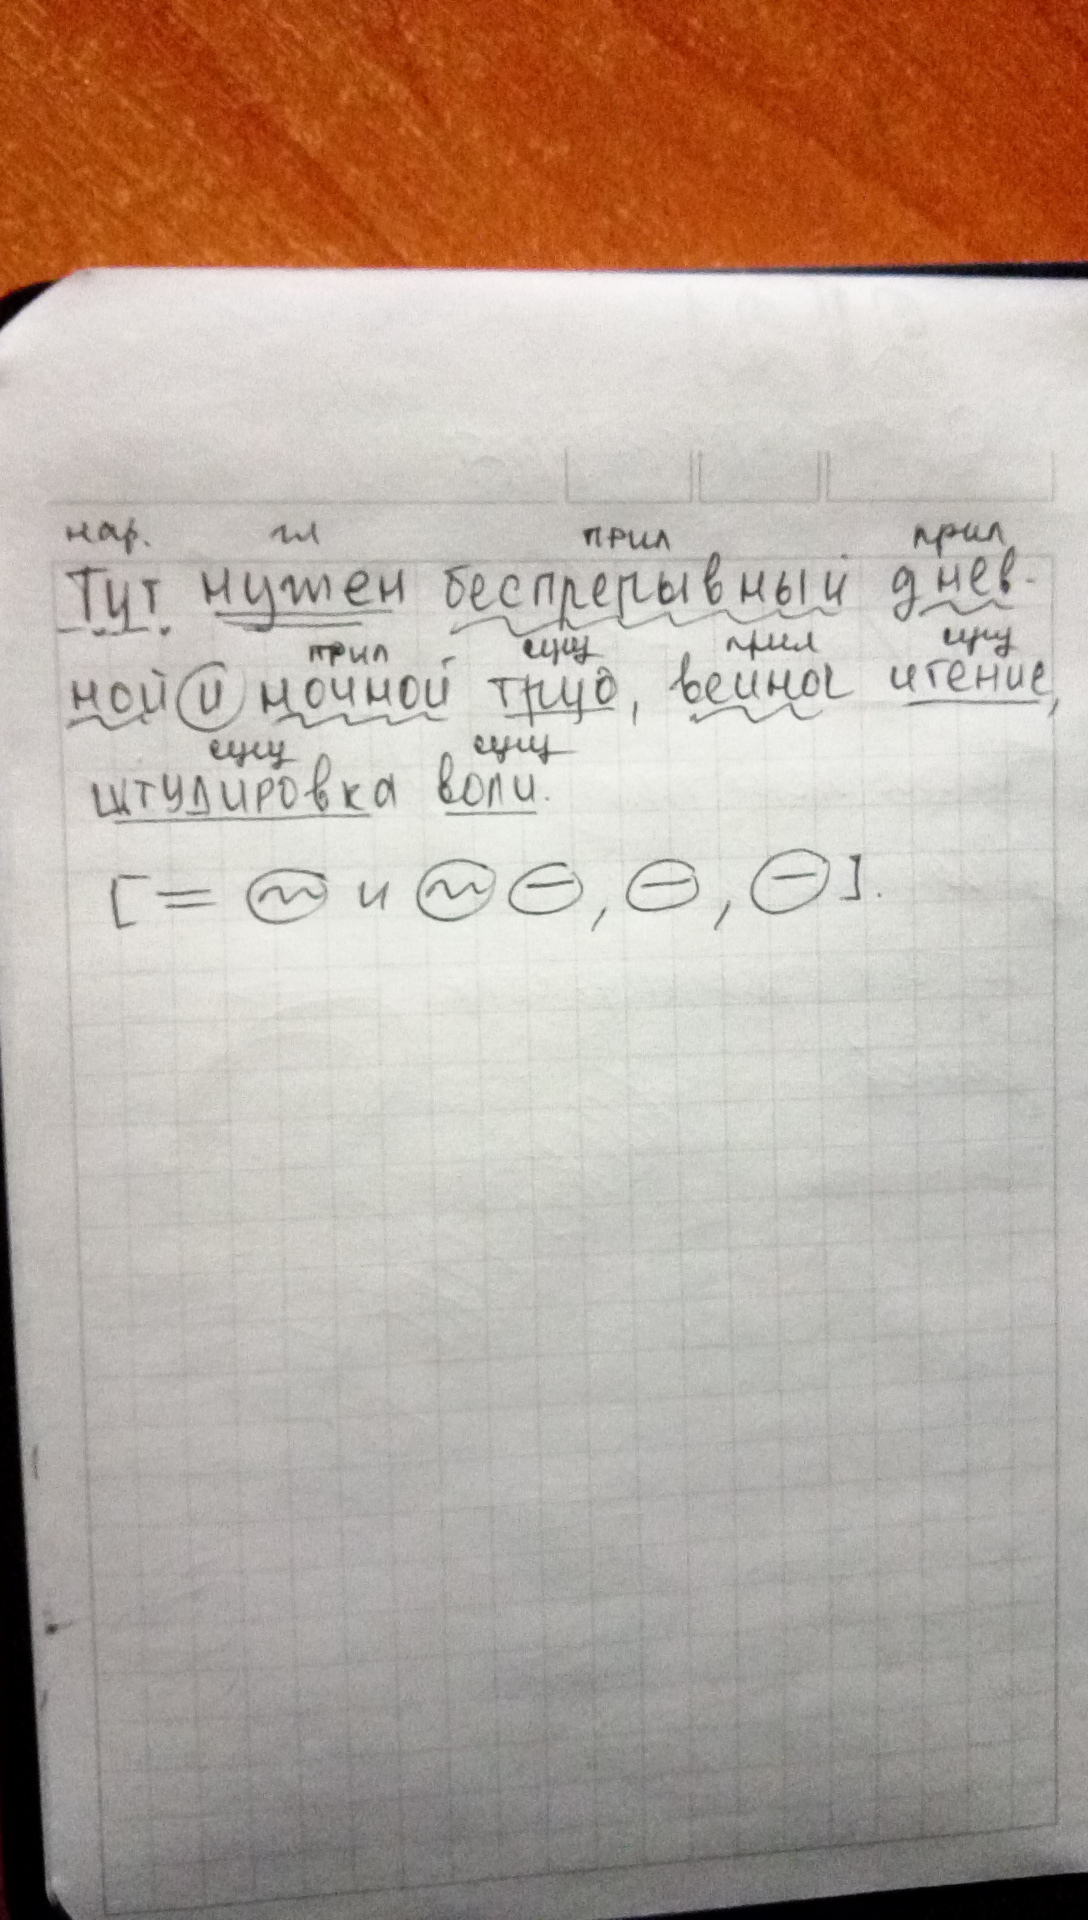 нар. гл прил прил
Тут нужен беспрерывный днев-
прил сущ прил сущ
ной и ночной труд, вечное чтение,
сущ сущ
штудировка воли.
[= и , , ].